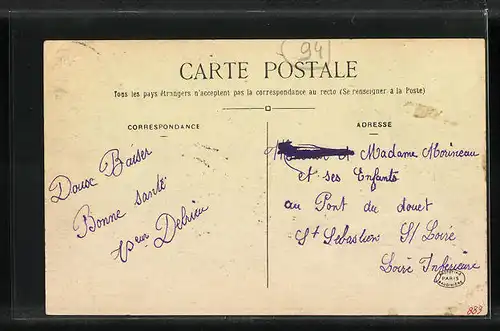 94
CARTE POSTALE
Tous les pays étrangers n'acceptent pas la correspondance au recto (Se renseigner à la Poste)
CORRESPONDANCE
Doux Baiser
Bonne santé
ADRESSE
et Madame Morineau
et ses Enfants
au Pont du douet
St Sébastien S/ Loire
Loire Inférieure
PARIS
883